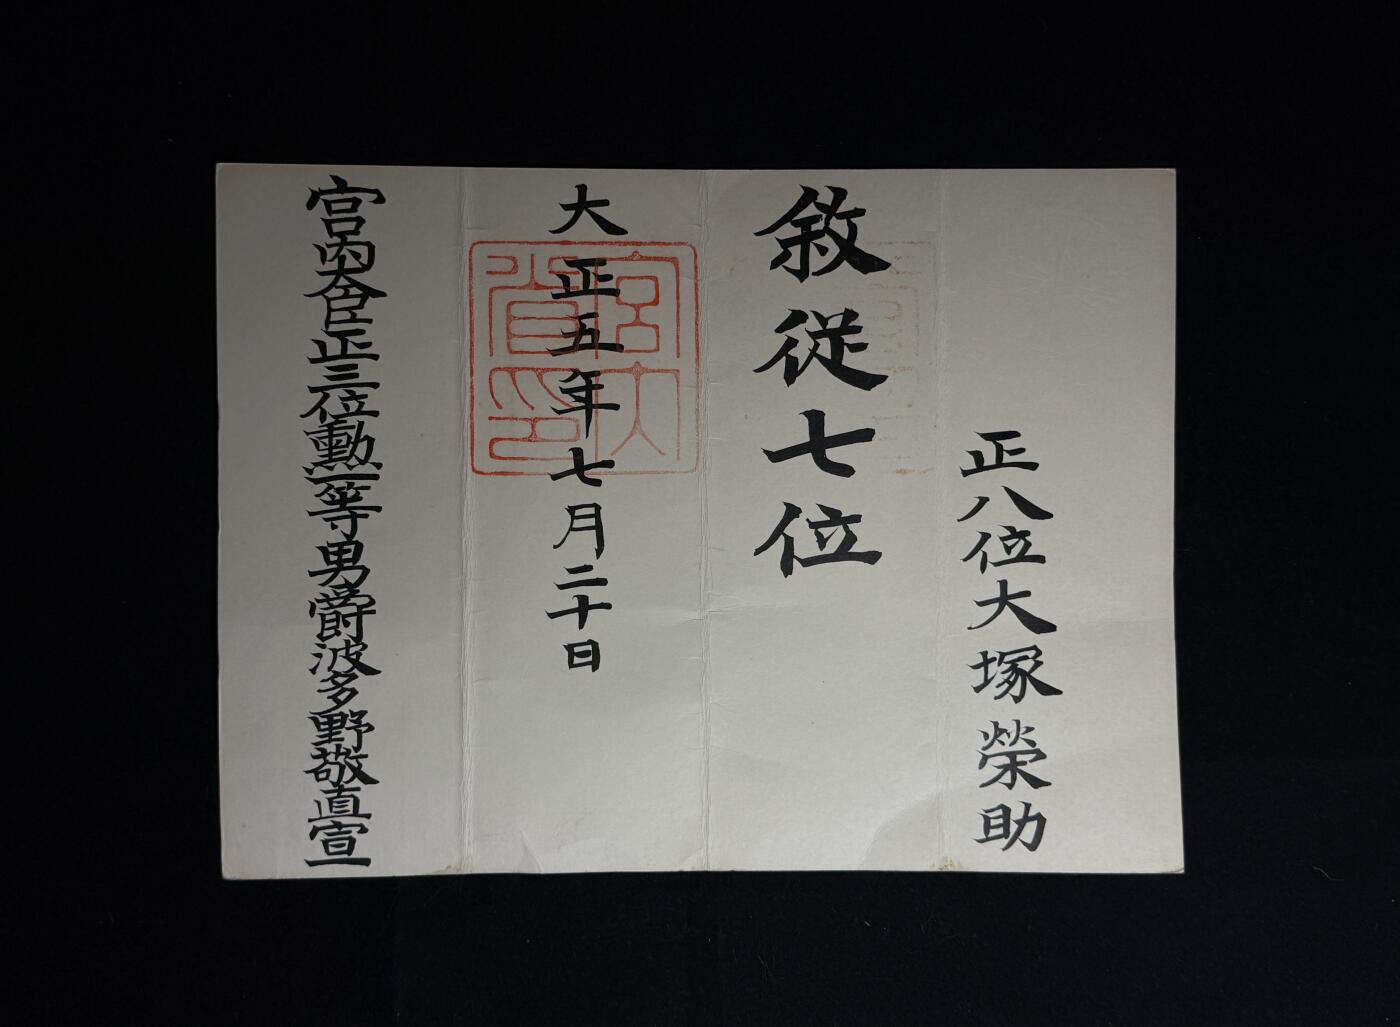 正八位大塚榮助
敘従七位
大正五年七月二十日
宮内大臣正三位勳一等男爵波多野敬直宣